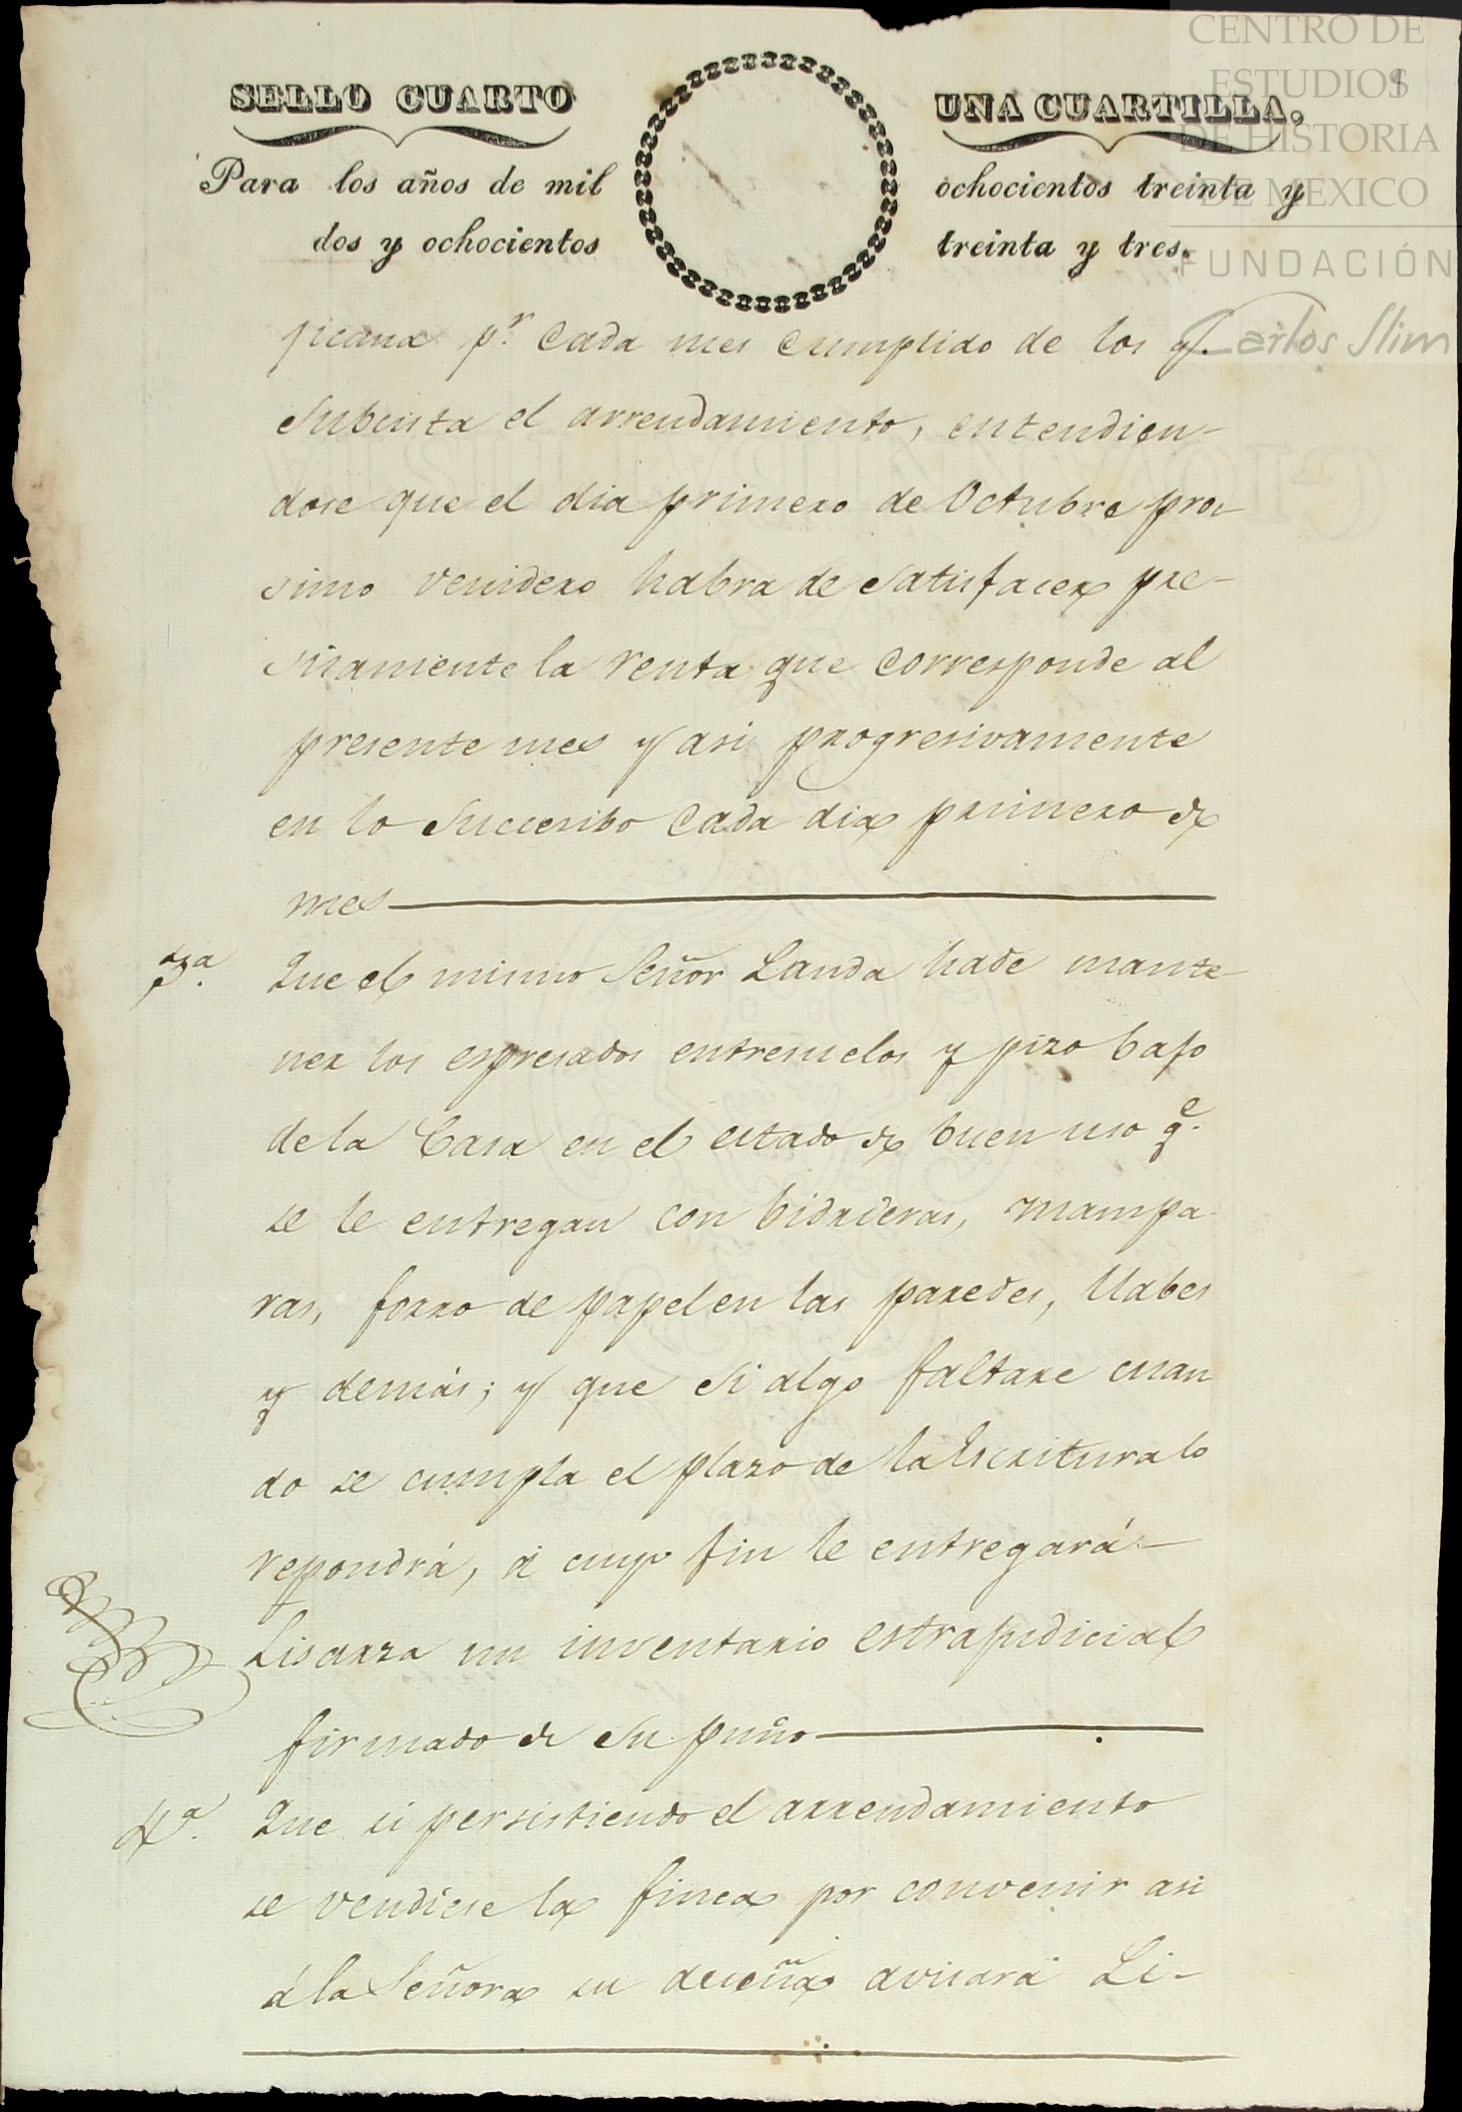 SELLO CUARTO
UNA CUARTILLA.
Para los años de mil
ochocientos treinta y
dos y ochocientos
treinta y tres.
CENTRO DE
ESTUDIOS
DE HISTORIA
DE MEXICO
FUNDACIÓN
Carlos Slim
jicana p.r cada mes cumplido de los q.
subsista el arrendamiento, entendien-
dose que el dia primero de Octubre pro-
simo venidero habra de satisfacer pre-
sisamente la renta que corresponde al
presente mes y asi progresivamente
en lo succesibo cada dia primero de
mes
3.a Que el mismo Señor Landa hade mante-
ner los espresados entresuelos y pizo bajo
de la Casa en el estado de buen uso q.e
se le entregan con bidrieras, mampa-
ras, forro de papel en las paredes, llabes
y demás; y que si algo faltare cuan
do se cumpla el plazo de la Escritura lo
repondrá, á cuyo fin le entregará
Lisarza un inventario estrajudicial
firmado de su puño
4.a Que si persistiendo el arrendamiento
se vendiese la finca por convenir asi
á la Señora su dueña avisará Li-